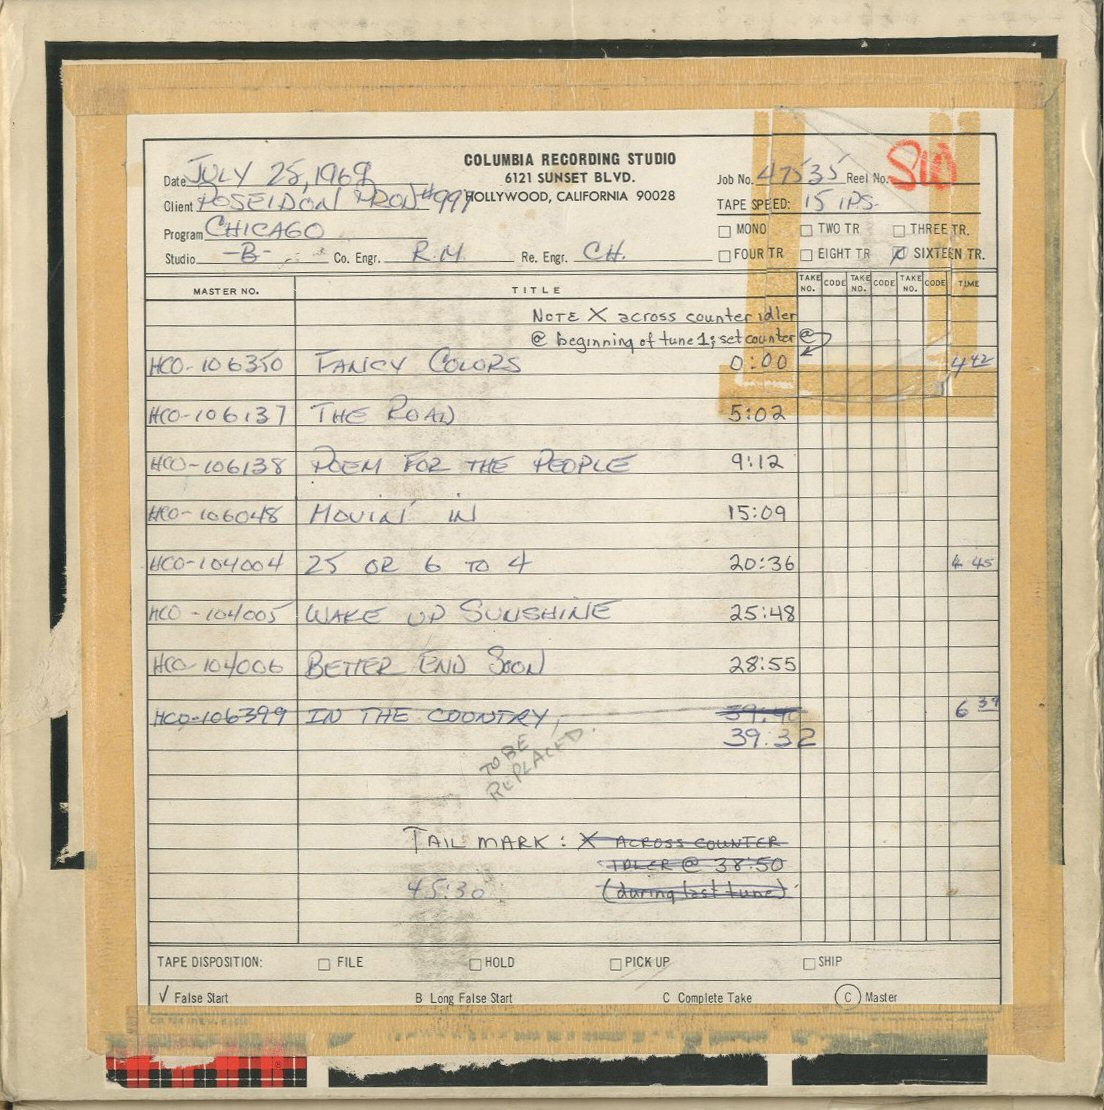 COLUMBIA RECORDING STUDIO
6121 SUNSET BLVD.
HOLLYWOOD, CALIFORNIA 90028
Date JULY 25, 1969
Client POSEIDON PROD #999
Program CHICAGO
Studio -B- Co. Engr. R.H. Re. Engr. CH.
Job No. 47535 Reel No.
TAPE SPEED: 15 IPS.
MONO TWO TR THREE TR.
FOUR TR EIGHT TR X SIXTEEN TR.
MASTER NO. TITLE TAKE NO. CODE TAKE NO. CODE TAKE NO. CODE TIME
NOTE X across counter idler
@ beginning of tune 1; set counter @
HCO-106350 FANCY COLORS 0:00 4 42
HCO-106137 THE ROAD 5:02
HCO-106138 POEM FOR THE PEOPLE 9:12
HCO-106048 MOVIN' IN 15:09
HCO-104004 25 OR 6 TO 4 20:36 4 45
HCO-104005 WAKE UP SUNSHINE 25:48
HCO-104006 BETTER END SOON 28:55
HCO-106399 IN THE COUNTRY, 39:40 6 39
39:32
TO BE
REPLACED.
TAIL MARK: X ACROSS COUNTER
IDLER @ 38:50
45:30 (during last tune)
TAPE DISPOSITION: FILE HOLD PICK UP SHIP
√ False Start B Long False Start C Complete Take C Master